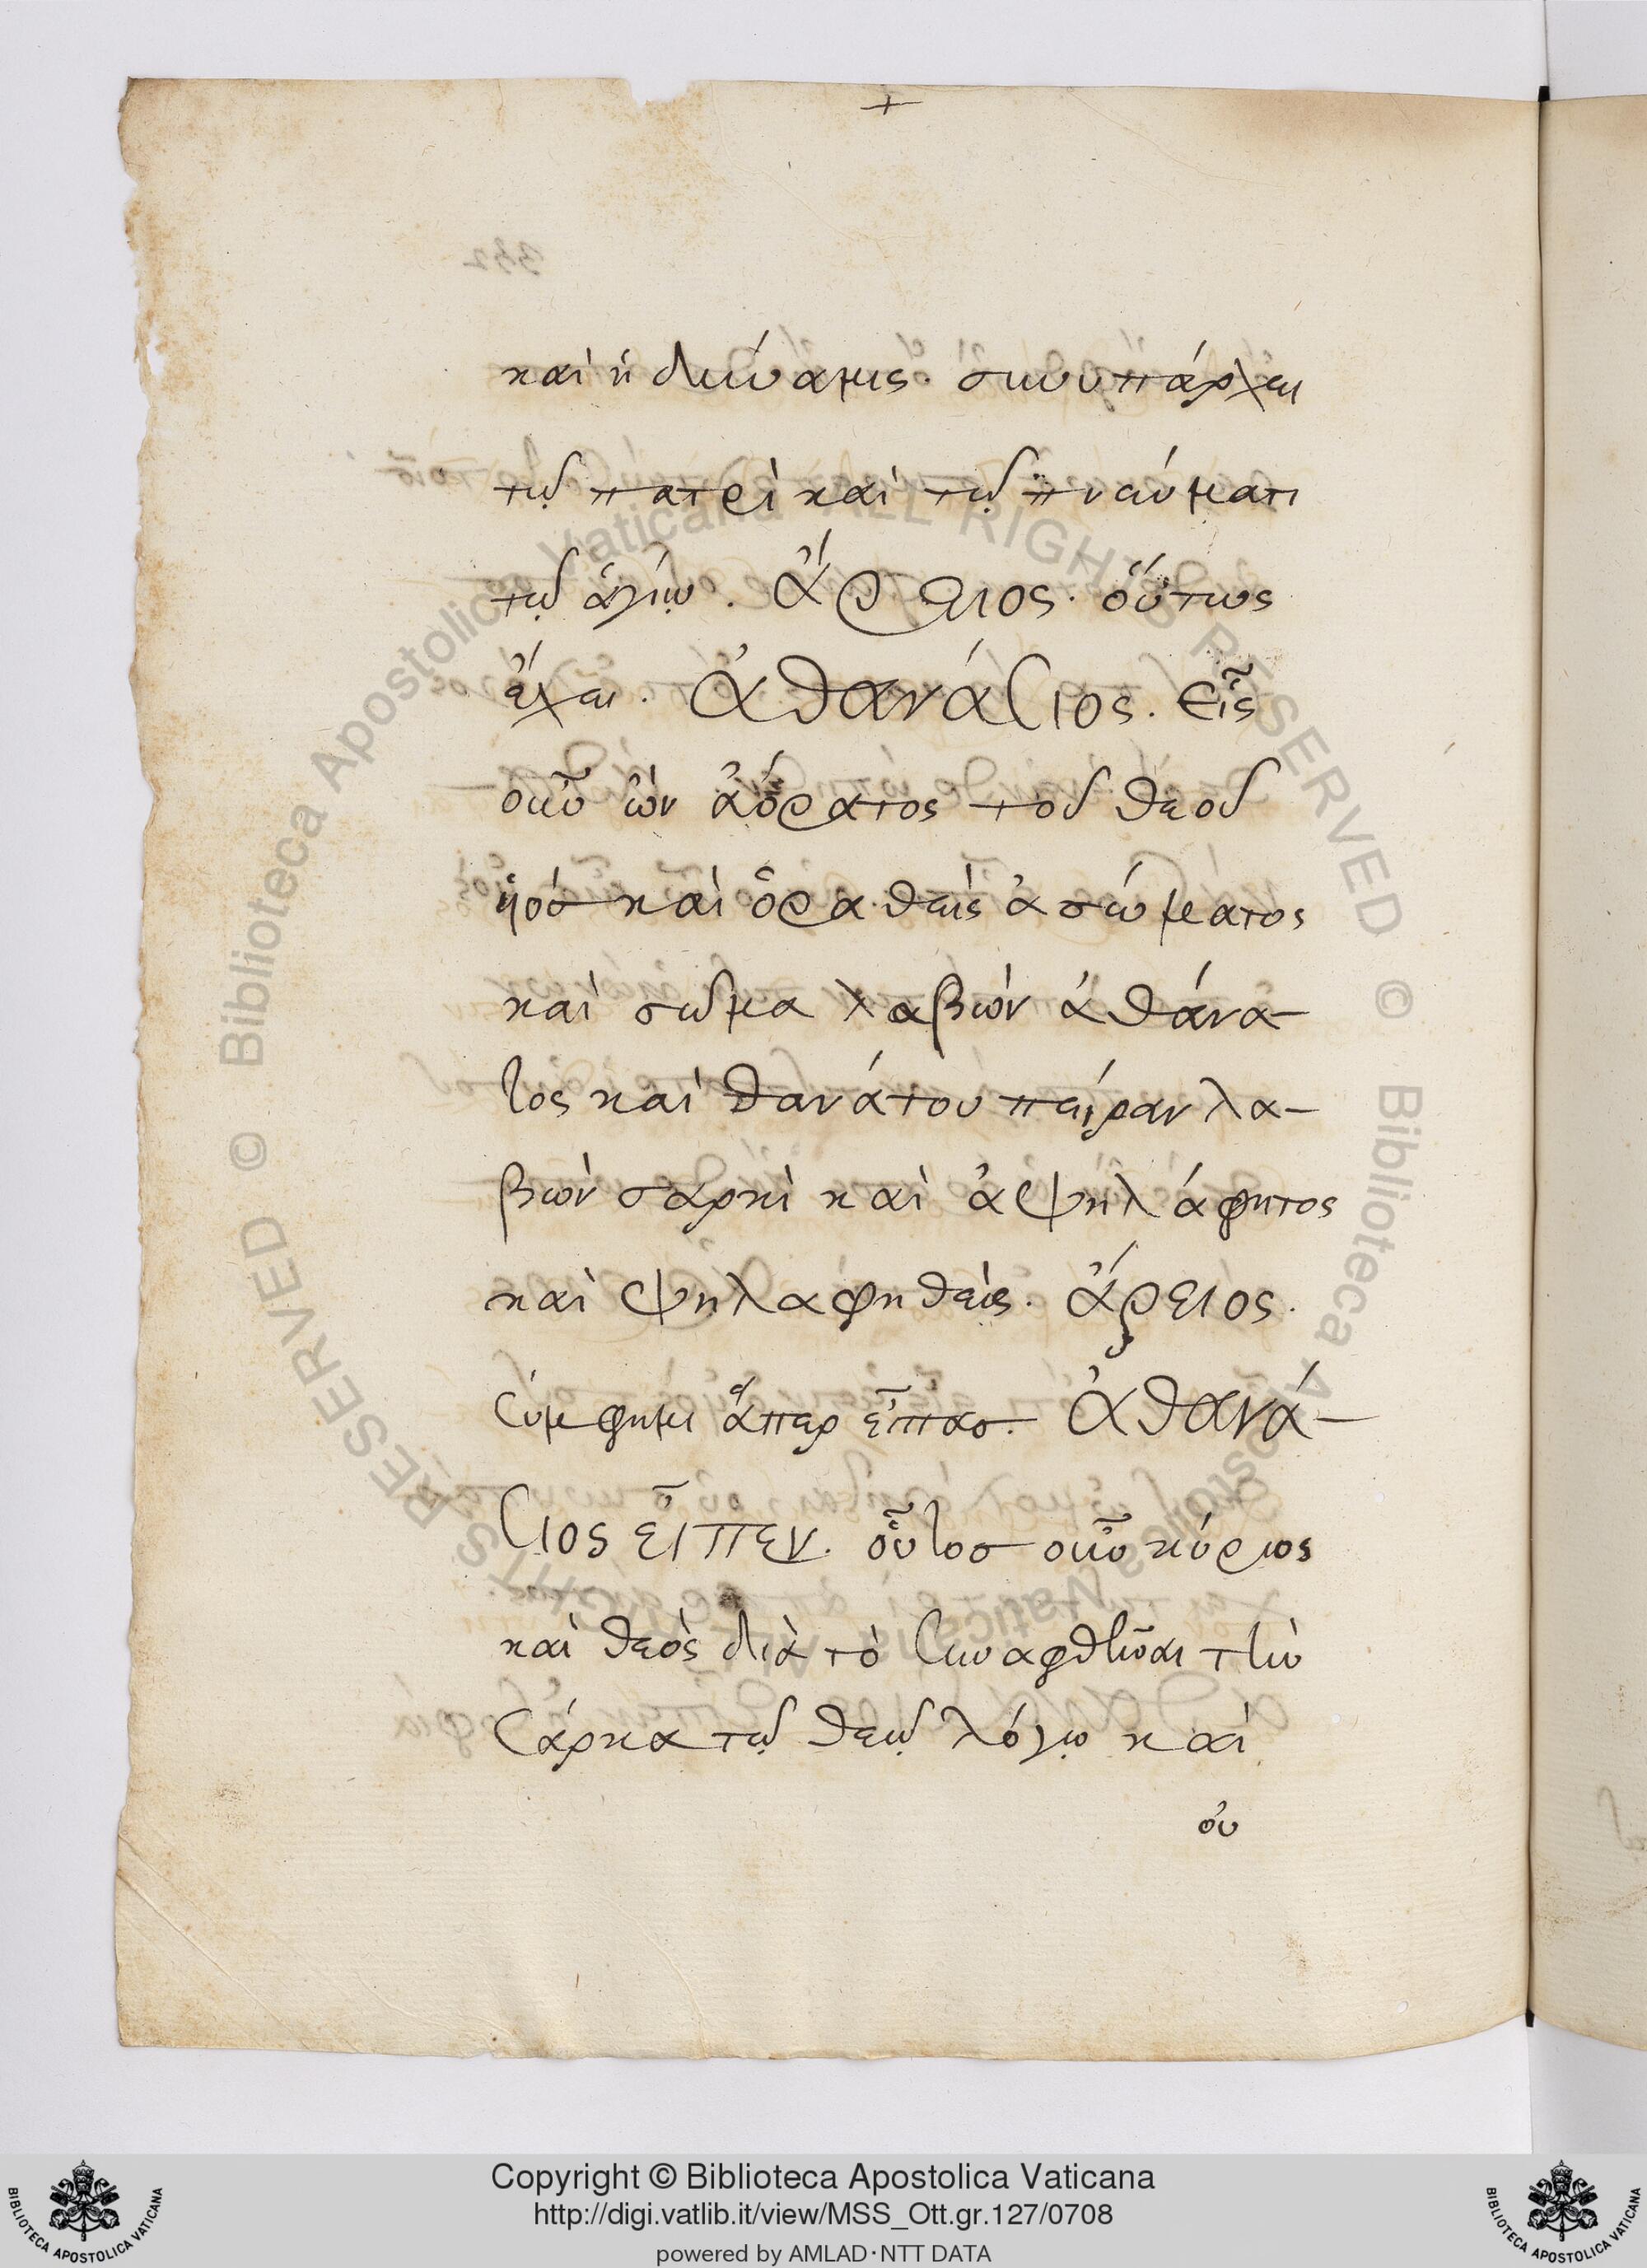 +
και ἡ δύναμις· συνυπάρχει
τῷ πατρὶ καὶ τῷ πνεύματι
τῷ ἁγίῳ. Ἄρειος· οὕτως
ἔχει. Ἀθανάσιος. Εἷς
οὖν ὢν ἀόρατος τοῦ θεοῦ
ὑιόσ καὶ ὁραθεὶς ἀσώματος
καὶ σῶμα λαβὼν ἀθάνα-
τος καὶ θανάτου πείραν λα-
βὼν σαρκὶ καὶ ἀψηλάφητος
καὶ ψηλαφηθείς. ἄρειος.
σύμφημι ἅπερ εἶπασ. Ἀθανά-
σιος εἶπεν. οὗτοσ οὖν κύριος
καὶ θεὸς διὰ τὸ συναφθῆναι τὴν
σάρκα τῷ θεῷ λόγῳ καὶ
οὐ
Copyright © Biblioteca Apostolica Vaticana
http://digi.vatlib.it/view/MSS_Ott.gr.127/0708
powered by AMLAD·NTT DATA
BIBLIOTECA APOSTOLICA VATICANA
BIBLIOTECA APOSTOLICA VATICANA
© Biblioteca Apostolica Vaticana ALL RIGHTS RESERVED
© Biblioteca Apostolica Vaticana ALL RIGHTS RESERVED